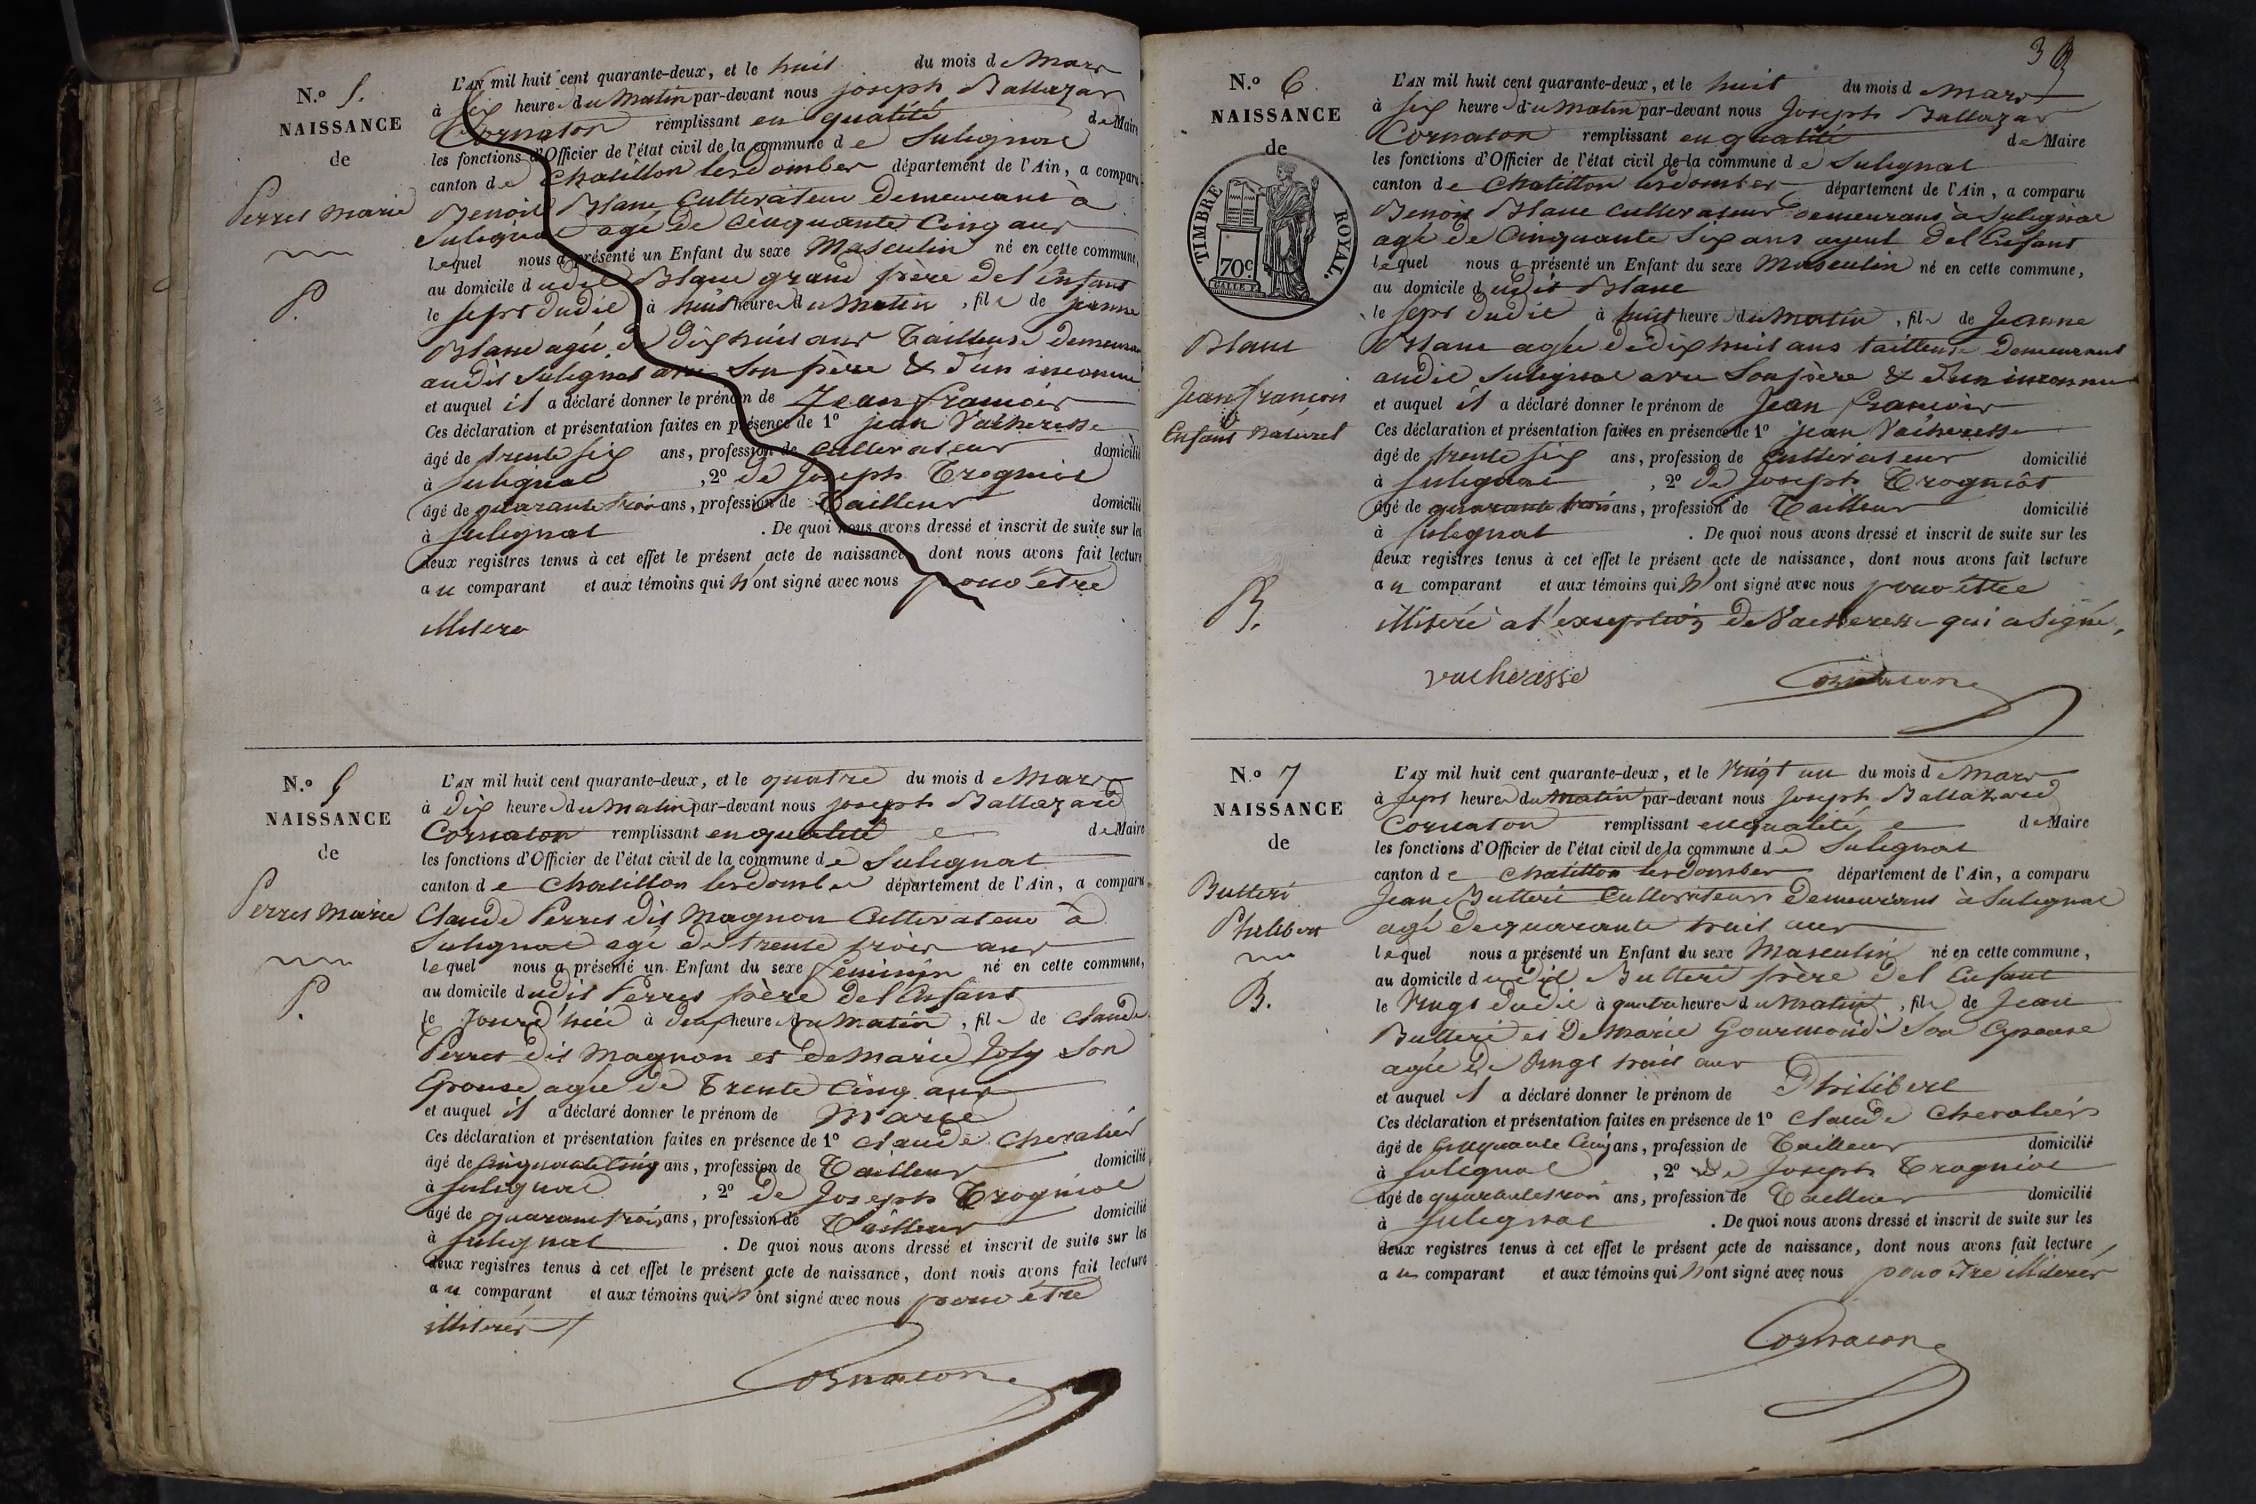 N.º 5.
NAISSANCE
de
Perret marie
P.
L'AN mil huit cent quarante-deux, et le huit du mois de Mars
à six heures du Matin par-devant nous joseph Baltazar
Cornaton remplissant en qualité de Maire
les fonctions d'Officier de l'état civil de la commune de Sulignat
canton de Chatillon lesdombes département de l'Ain, a comparu
Benoit Blanc Cultivateur Demeurant à
Sulignat agé de Cinquante Cinq ans
lequel nous a présenté un Enfant du sexe Masculin né en cette commune,
au domicile dudit Blanc grand père del Enfant
le sept dudit à huit heures du Matin, fils de jeanne
Blanc agée de Dix huit ans Tailleuse Demeurant
audit Sulignat avec Son père & d'un inconnu
et auquel il a déclaré donner le prénom de Jean françois
Ces déclaration et présentation faites en présence de 1º jean Vacheresse
âgé de trente six ans, profession de Cultivateur domicilié
à Sulignat, 2º de Joseph Trogniot
âgé de quarante trois ans, profession de Tailleur domicilié
à Sulignat. De quoi nous avons dressé et inscrit de suite sur les
deux registres tenus à cet effet le présent acte de naissance, dont nous avons fait lecture
au comparant et aux témoins qui n'ont signé avec nous pour être
illiteré
N.º 5
NAISSANCE
de
Perret marie
P.
L'AN mil huit cent quarante-deux, et le quatre du mois de Mars
à dix heures du Matin par-devant nous joseph Baltazard
Cornaton remplissant en qualité de Maire
les fonctions d'Officier de l'état civil de la commune de Sulignat
canton de Chatillon lesdombes département de l'Ain, a comparu
Claude Perret dit Magnon Cultivateur à
Sulignat agé de trente trois ans
lequel nous a présenté un Enfant du sexe feminin né en cette commune,
au domicile dudit Perret père del Enfant
le Jourd'hui à deux heures du Matin, fil de Claude
Perret dit Magnon et de Marie Joly Son
Epouse agée de Trente Cinq ans
et auquel il a déclaré donner le prénom de Marie
Ces déclaration et présentation faites en présence de 1º Claude Chevalier
âgé de Cinquante Cinq ans, profession de Tailleur domicilié
à Sulignat, 2º de Joseph Trogniot
âgé de quarante trois ans, profession de Tailleur domicilié
à Sulignat. De quoi nous avons dressé et inscrit de suite sur les
deux registres tenus à cet effet le présent acte de naissance, dont nous avons fait lecture
au comparant et aux témoins qui n'ont signé avec nous pour être
illiterés
Cornaton
N.º 6
NAISSANCE
de
TIMBRE ROYAL.
70c
Blanc
Jean françois
Enfant Naturel
B.
L'AN mil huit cent quarante-deux, et le huit du mois de Mars
à six heures du Matin par-devant nous Joseph Baltazar
Cornaton remplissant en qualité de Maire
les fonctions d'Officier de l'état civil de la commune de Sulignat
canton de Chatillon lesdombes département de l'Ain, a comparu
Benoit Blanc Cultivateur demeurant à Sulignat
agé de Cinquante Six ans ayeul del Enfant
lequel nous a présenté un Enfant du sexe Masculin né en cette commune,
au domicile dudit Blanc
le sept dudit à huit heures du Matin, fils de Jeanne
Blanc agée de dix huit ans tailleuse Demeurant
audit Sulignat avec Son père & d'un inconnu
et auquel il a déclaré donner le prénom de Jean françois
Ces déclaration et présentation faites en présence de 1º jean Vacheresse
âgé de trente six ans, profession de Cultivateur domicilié
à Sulignat, 2º de Joseph Trogniot
âgé de quarante trois ans, profession de Tailleur domicilié
à Sulignat. De quoi nous avons dressé et inscrit de suite sur les
deux registres tenus à cet effet le présent acte de naissance, dont nous avons fait lecture
au comparant et aux témoins qui n'ont signé avec nous pour être
illiteré a l'exception de Vacheresse qui a Signé.
vacheresse Cornaton
N.º 7
NAISSANCE
de
Butteri
Philibert
B.
L'AN mil huit cent quarante-deux, et le Vingt un du mois de Mars
à sept heures du Matin par-devant nous Joseph Baltazard
Cornaton remplissant en qualité de Maire
les fonctions d'Officier de l'état civil de la commune de Sulignat
canton de Chatillon lesdombes département de l'Ain, a comparu
Jean Butteri Cultivateur Demeurant à Sulignat
agé de quarante trois ans
lequel nous a présenté un Enfant du sexe Masculin né en cette commune,
au domicile dudit Butteri père del Enfant
le Vingt dudit à quatre heures du Matin, fils de Jean
Butteri et de Marie Gourmond Son Epouse
agée de Vingt trois ans
et auquel il a déclaré donner le prénom de Philibert
Ces déclaration et présentation faites en présence de 1º Claude Chevalier
âgé de Cinquante Cinq ans, profession de Tailleur domicilié
à Sulignat, 2º de Joseph Trogniot
âgé de quarante trois ans, profession de Tailleur domicilié
à Sulignat. De quoi nous avons dressé et inscrit de suite sur les
deux registres tenus à cet effet le présent acte de naissance, dont nous avons fait lecture
au comparant et aux témoins qui n'ont signé avec nous pour être illiterés
Cornaton